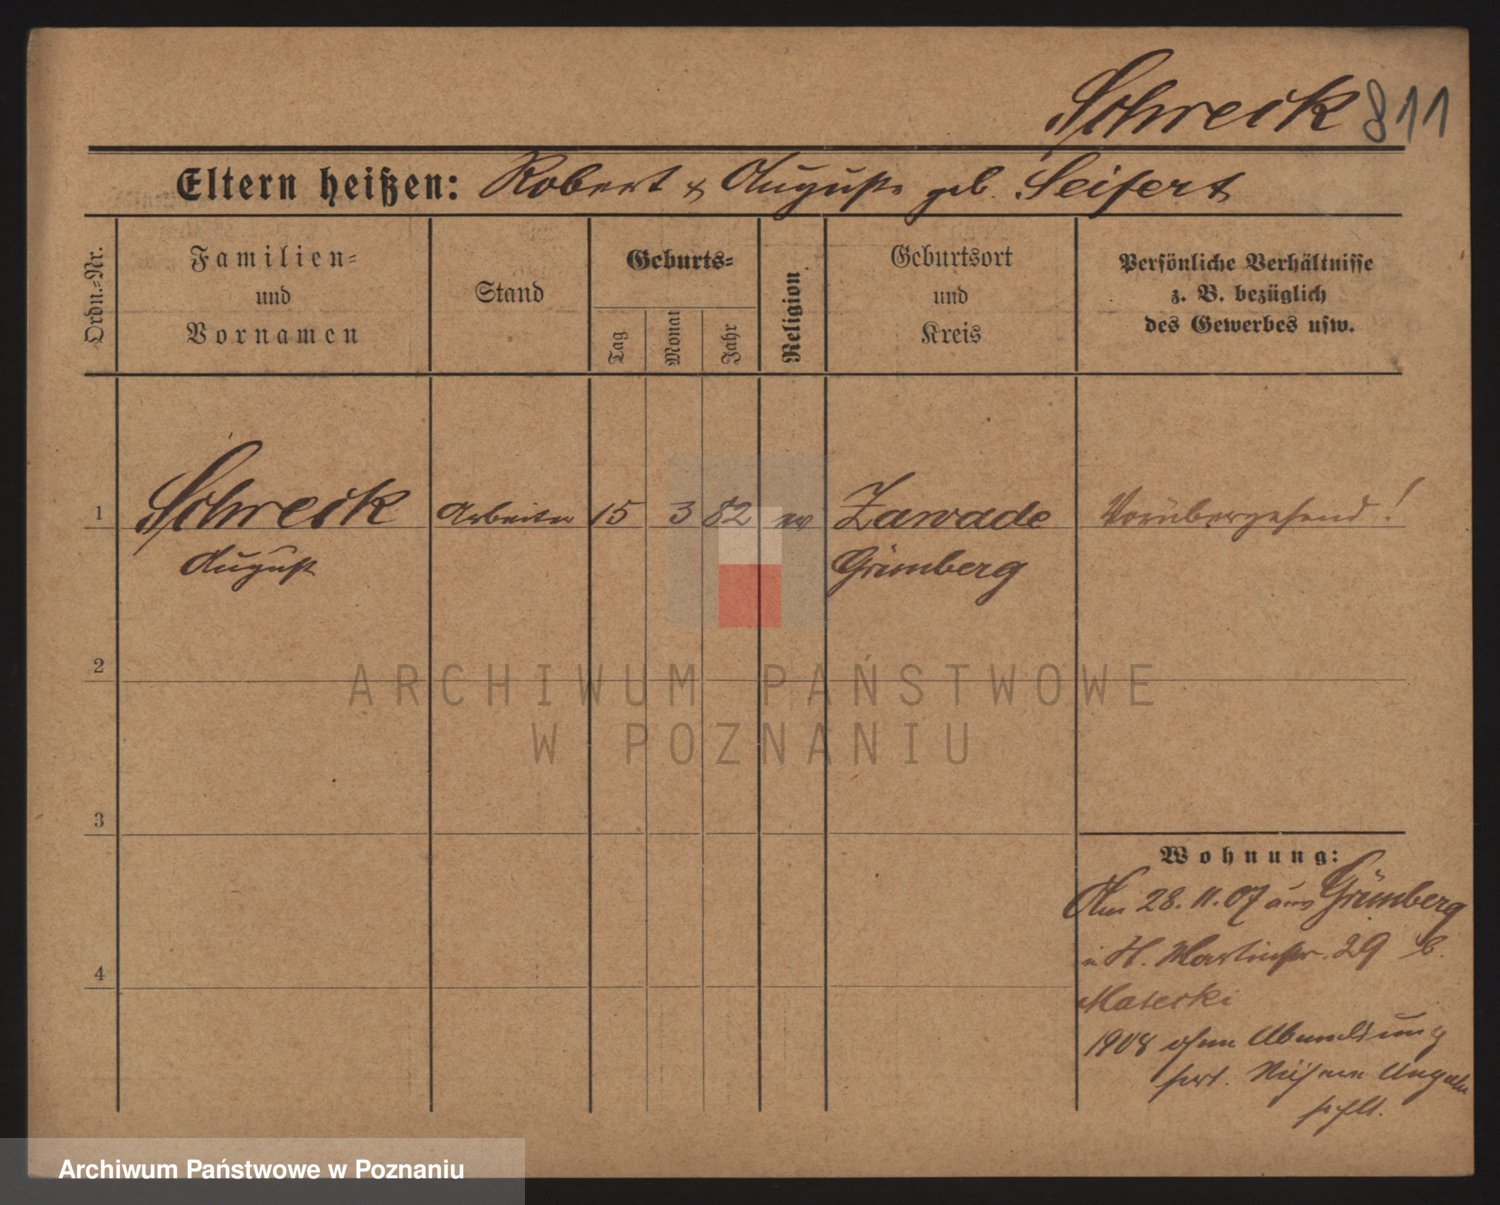 Schreck 811
Eltern heißen: Robert & Auguste geb. Seifert
Ordn.-Nr.
Familien-
und
Vornamen
Stand
Geburts-
Tag
Monat
Jahr
Religion
Geburtsort
und
Kreis
Persönliche Verhältnisse
z. B. bezüglich
des Gewerbes usw.
1 Schreck Arbeiter 15 3 82 ev Zawade Vorübergehend!
August Grünberg
2
ARCHIWUM PAŃSTWOWE
W POZNANIU
3
Wohnung:
Am 28.11.07 aus Grünberg
n. St. Martinstr. 29 b.
4
Matecki
1908 ohne Abmeldung
fort. Nähere Angabe
fehlt.
Archiwum Państwowe w Poznaniu